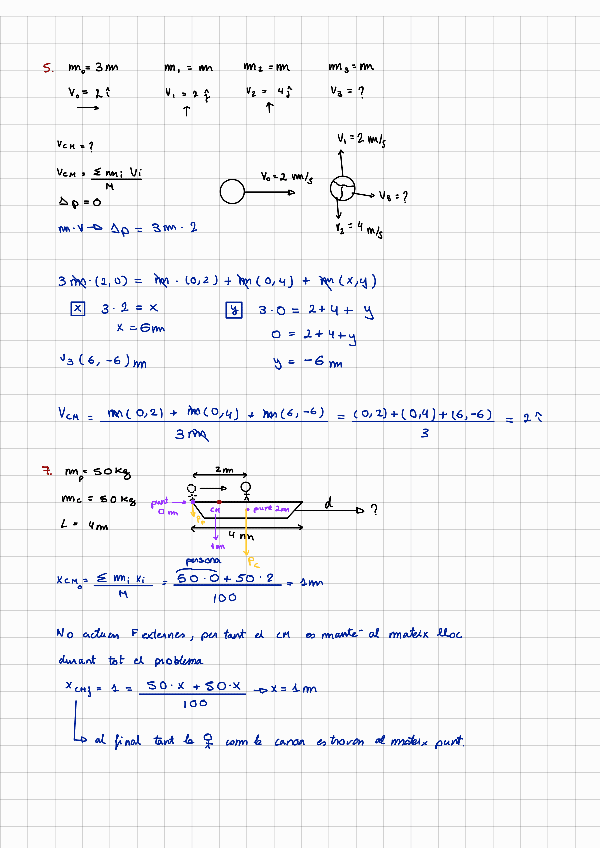 5. m₀ = 3m m₁ = m m₂ = m m₃ = m
V₀ = 2 î V₁ = 2 ĵ V₂ = 4ĵ V₃ = ?
V_CM = ?
V_CM = Σ mᵢ Vᵢ / M
Δp = 0
m·V → Δp = 3m · 2
V₀ = 2 m/s
V₁ = 2 m/s
V₃ = ?
V₂ = 4 m/s
3m·(2,0) = m · (0,2) + m(0,4) + m(x,y)
x 3·2 = x
x = 6m
y 3·0 = 2+4+ y
0 = 2+4+y
y = -6 m
V₃ (6,-6) m
V_CM = m(0,2) + m(0,4) + m(6,-6) / 3m = (0,2)+(0,4)+(6,-6) / 3 = 2 î
7. m_p = 50 kg
m_c = 50 kg
L = 4m
2m
punt 0 m
CM
punt 2m
1m
4 m
P_c
d
?
persona
x_CM₀ = Σ mᵢ xᵢ / M = 50·0 + 50·2 / 100 = 1m
No actuen F externes, per tant el CM es manté al mateix lloc
durant tot el problema
x_CMf = 1 = 50·x + 50·x / 100 → x = 1m
al final tant la com la canoa es troven al mateix punt.